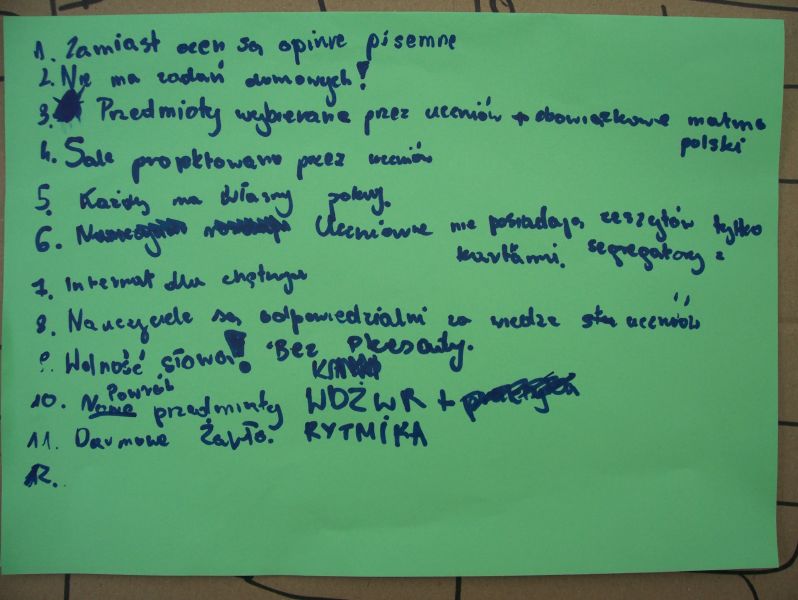 1. Zamiast ocen są opinie pisemne
2. Nie ma zadań domowych!
3. Przedmioty wybierane przez uczniów + obowiązkowe matma
polski
4. Sale projektowane przez uczniów
5. Każdy ma własny pokój.
6. Uczniowie nie posiadają zeszytów tylko
segregatory z
kartkami.
7. Internat dla chętnych
8. Nauczyciele są odpowiedzialni za wiedzę uczniów
9. Wolność słowa! Bez
10. Powrót przedmioty WDŻWR +
11. Darmowe RYTMIKA
12.